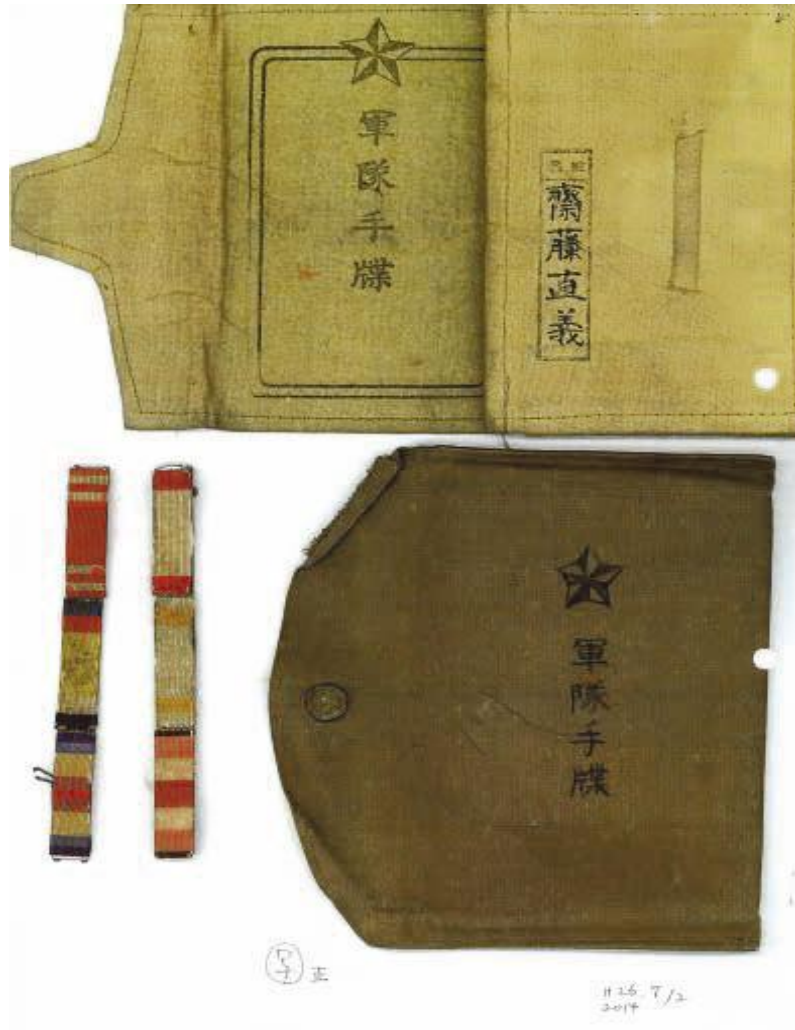 軍隊手牒
氏名
齋藤直義
軍隊手牒
写 正
H26 7/2
2014